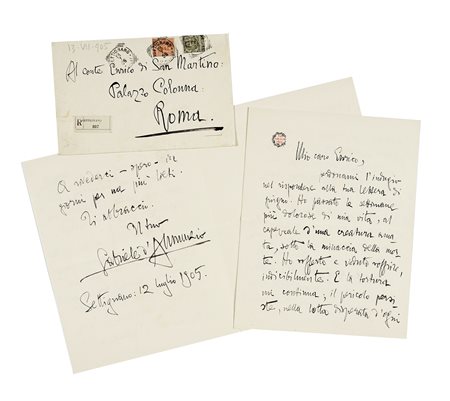 13·VII·905
Al conte Enrico di San Martino.
Palazzo Colonna.
Roma.
R SETTIGNANO
807
A rivederci – spero – in
giorni per noi più lieti.
Ti abbraccio.
Il tuo
Gabriele d'Annunzio
Settignano. 12 luglio 1905.
Mio caro Enrico,
perdonami l'indugio
nel rispondere alla tua lettera di
giugno. Ho passato le settimane
più dolorose di mia vita, al
capezzale d'una creatura ama
ta, sotto la minaccia della mor
te. Ho sofferto e veduto soffrire,
indicibilmente. E la tortura
mi continua; il pericolo persi
ste, nella lotta disperata d'ogni